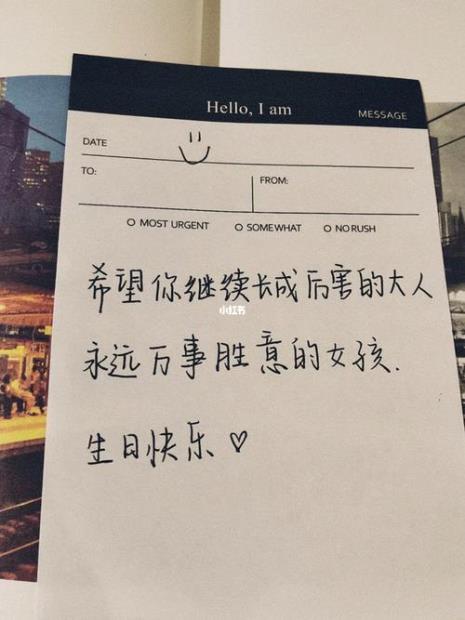 Hello, I am
MESSAGE
DATE
TO:
FROM:
MOST URGENT
SOMEWHAT
NO RUSH
希望你继续长成厉害的大人
小红书
永远万事胜意的女孩.
生日快乐♡